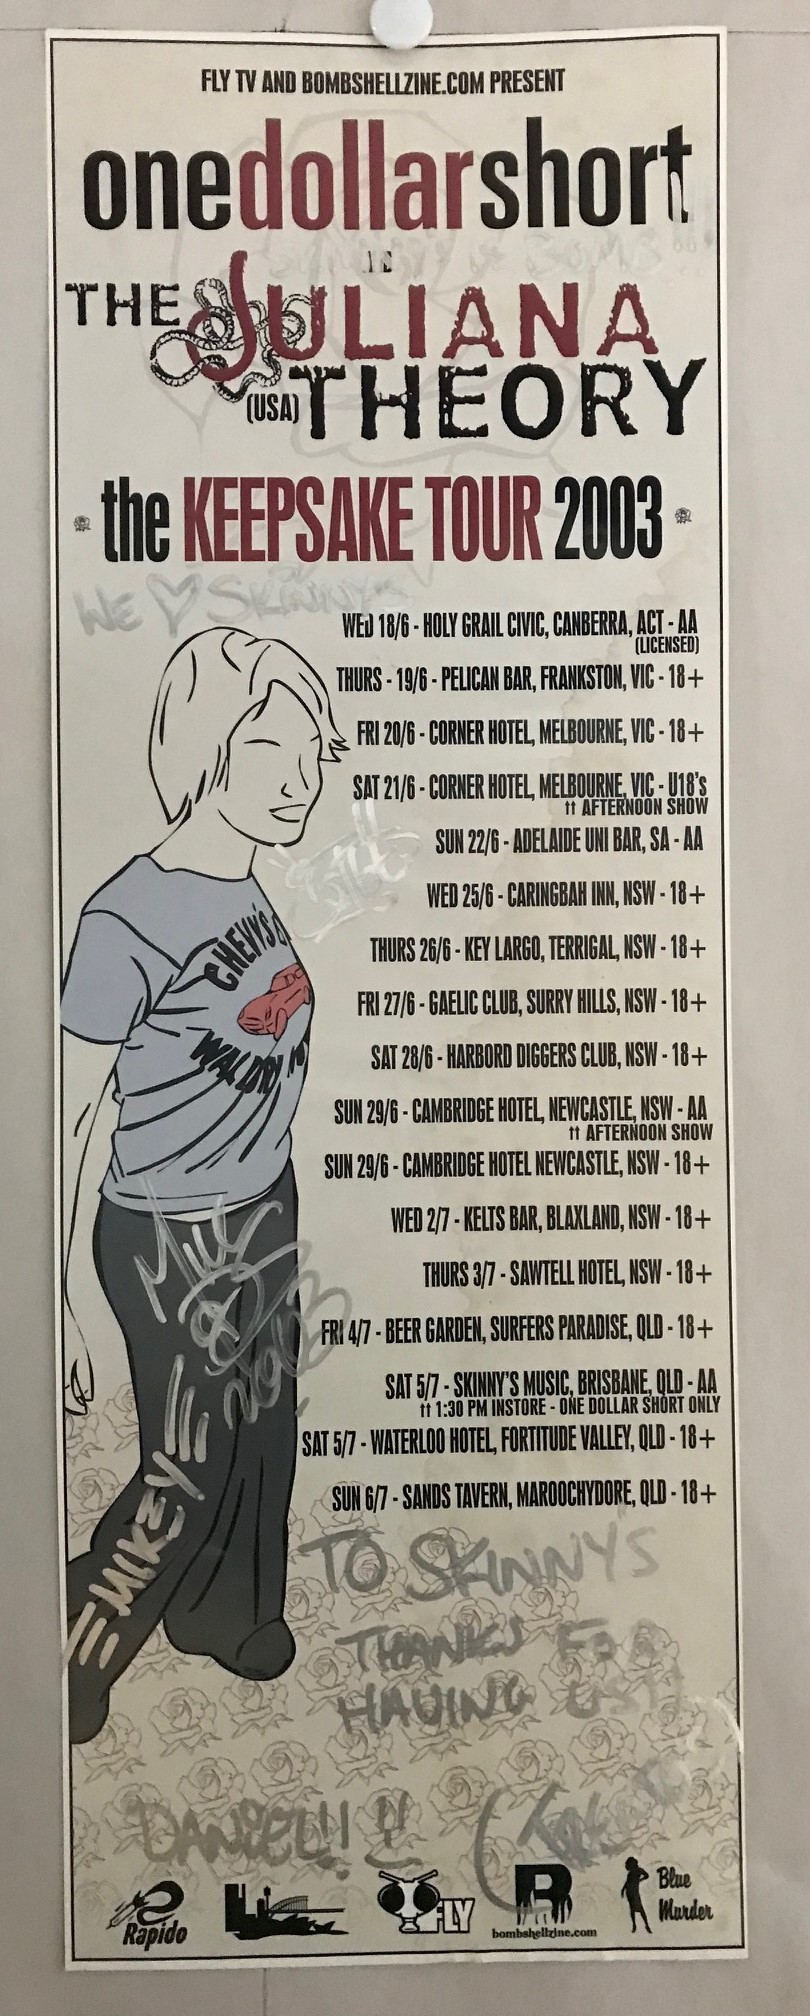 FLY TV AND BOMBSHELLZINE.COM PRESENT
onedollarshort
THE JULIANA
(USA) THEORY
the KEEPSAKE TOUR 2003
WE ♡ SKINNY'S
WED 18/6 - HOLY GRAIL CIVIC, CANBERRA, ACT - AA
(LICENSED)
THURS - 19/6 - PELICAN BAR, FRANKSTON, VIC - 18+
FRI 20/6 - CORNER HOTEL, MELBOURNE, VIC - 18+
SAT 21/6 - CORNER HOTEL, MELBOURNE, VIC - U18's
†† AFTERNOON SHOW
SUN 22/6 - ADELAIDE UNI BAR, SA - AA
WED 25/6 - CARINGBAH INN, NSW - 18+
THURS 26/6 - KEY LARGO, TERRIGAL, NSW - 18+
FRI 27/6 - GAELIC CLUB, SURRY HILLS, NSW - 18+
SAT 28/6 - HARBORD DIGGERS CLUB, NSW - 18+
SUN 29/6 - CAMBRIDGE HOTEL, NEWCASTLE, NSW - AA
†† AFTERNOON SHOW
SUN 29/6 - CAMBRIDGE HOTEL NEWCASTLE, NSW - 18+
WED 2/7 - KELTS BAR, BLAXLAND, NSW - 18+
THURS 3/7 - SAWTELL HOTEL, NSW - 18+
FRI 4/7 - BEER GARDEN, SURFERS PARADISE, QLD - 18+
SAT 5/7 - SKINNY'S MUSIC, BRISBANE, QLD - AA
†† 1:30 PM INSTORE - ONE DOLLAR SHORT ONLY
SAT 5/7 - WATERLOO HOTEL, FORTITUDE VALLEY, QLD - 18+
SUN 6/7 - SANDS TAVERN, MAROOCHYDORE, QLD - 18+
CHEVY'S
2003
MIKEY
TO SKINNY'S
THANKS FOR
HAVING US!!
DANIEL!!
Rapido
FLY
bombshellzine.com
Blue
Murder